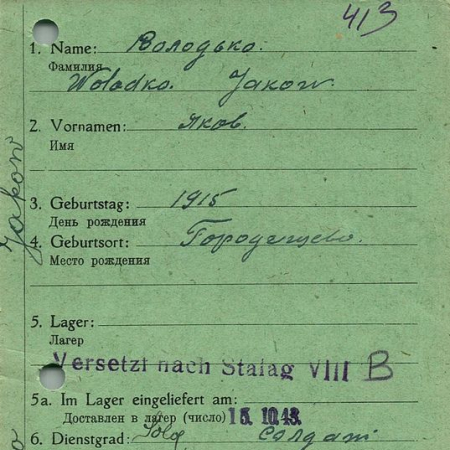 413
1. Name: Володько.
Фамилия
Wolodko. Jakow.
2. Vornamen: Яков.
Имя
3. Geburtstag: 1915
День рождения
4. Geburtsort: Городищево.
Место рождения
Jakow
5. Lager:
Лагерь
Versetzt nach Stalag VIII B
5a. Im Lager eingeliefert am:
Доставлен в лагер (число) 15. 10. 43.
6. Dienstgrad: Sold Солдат